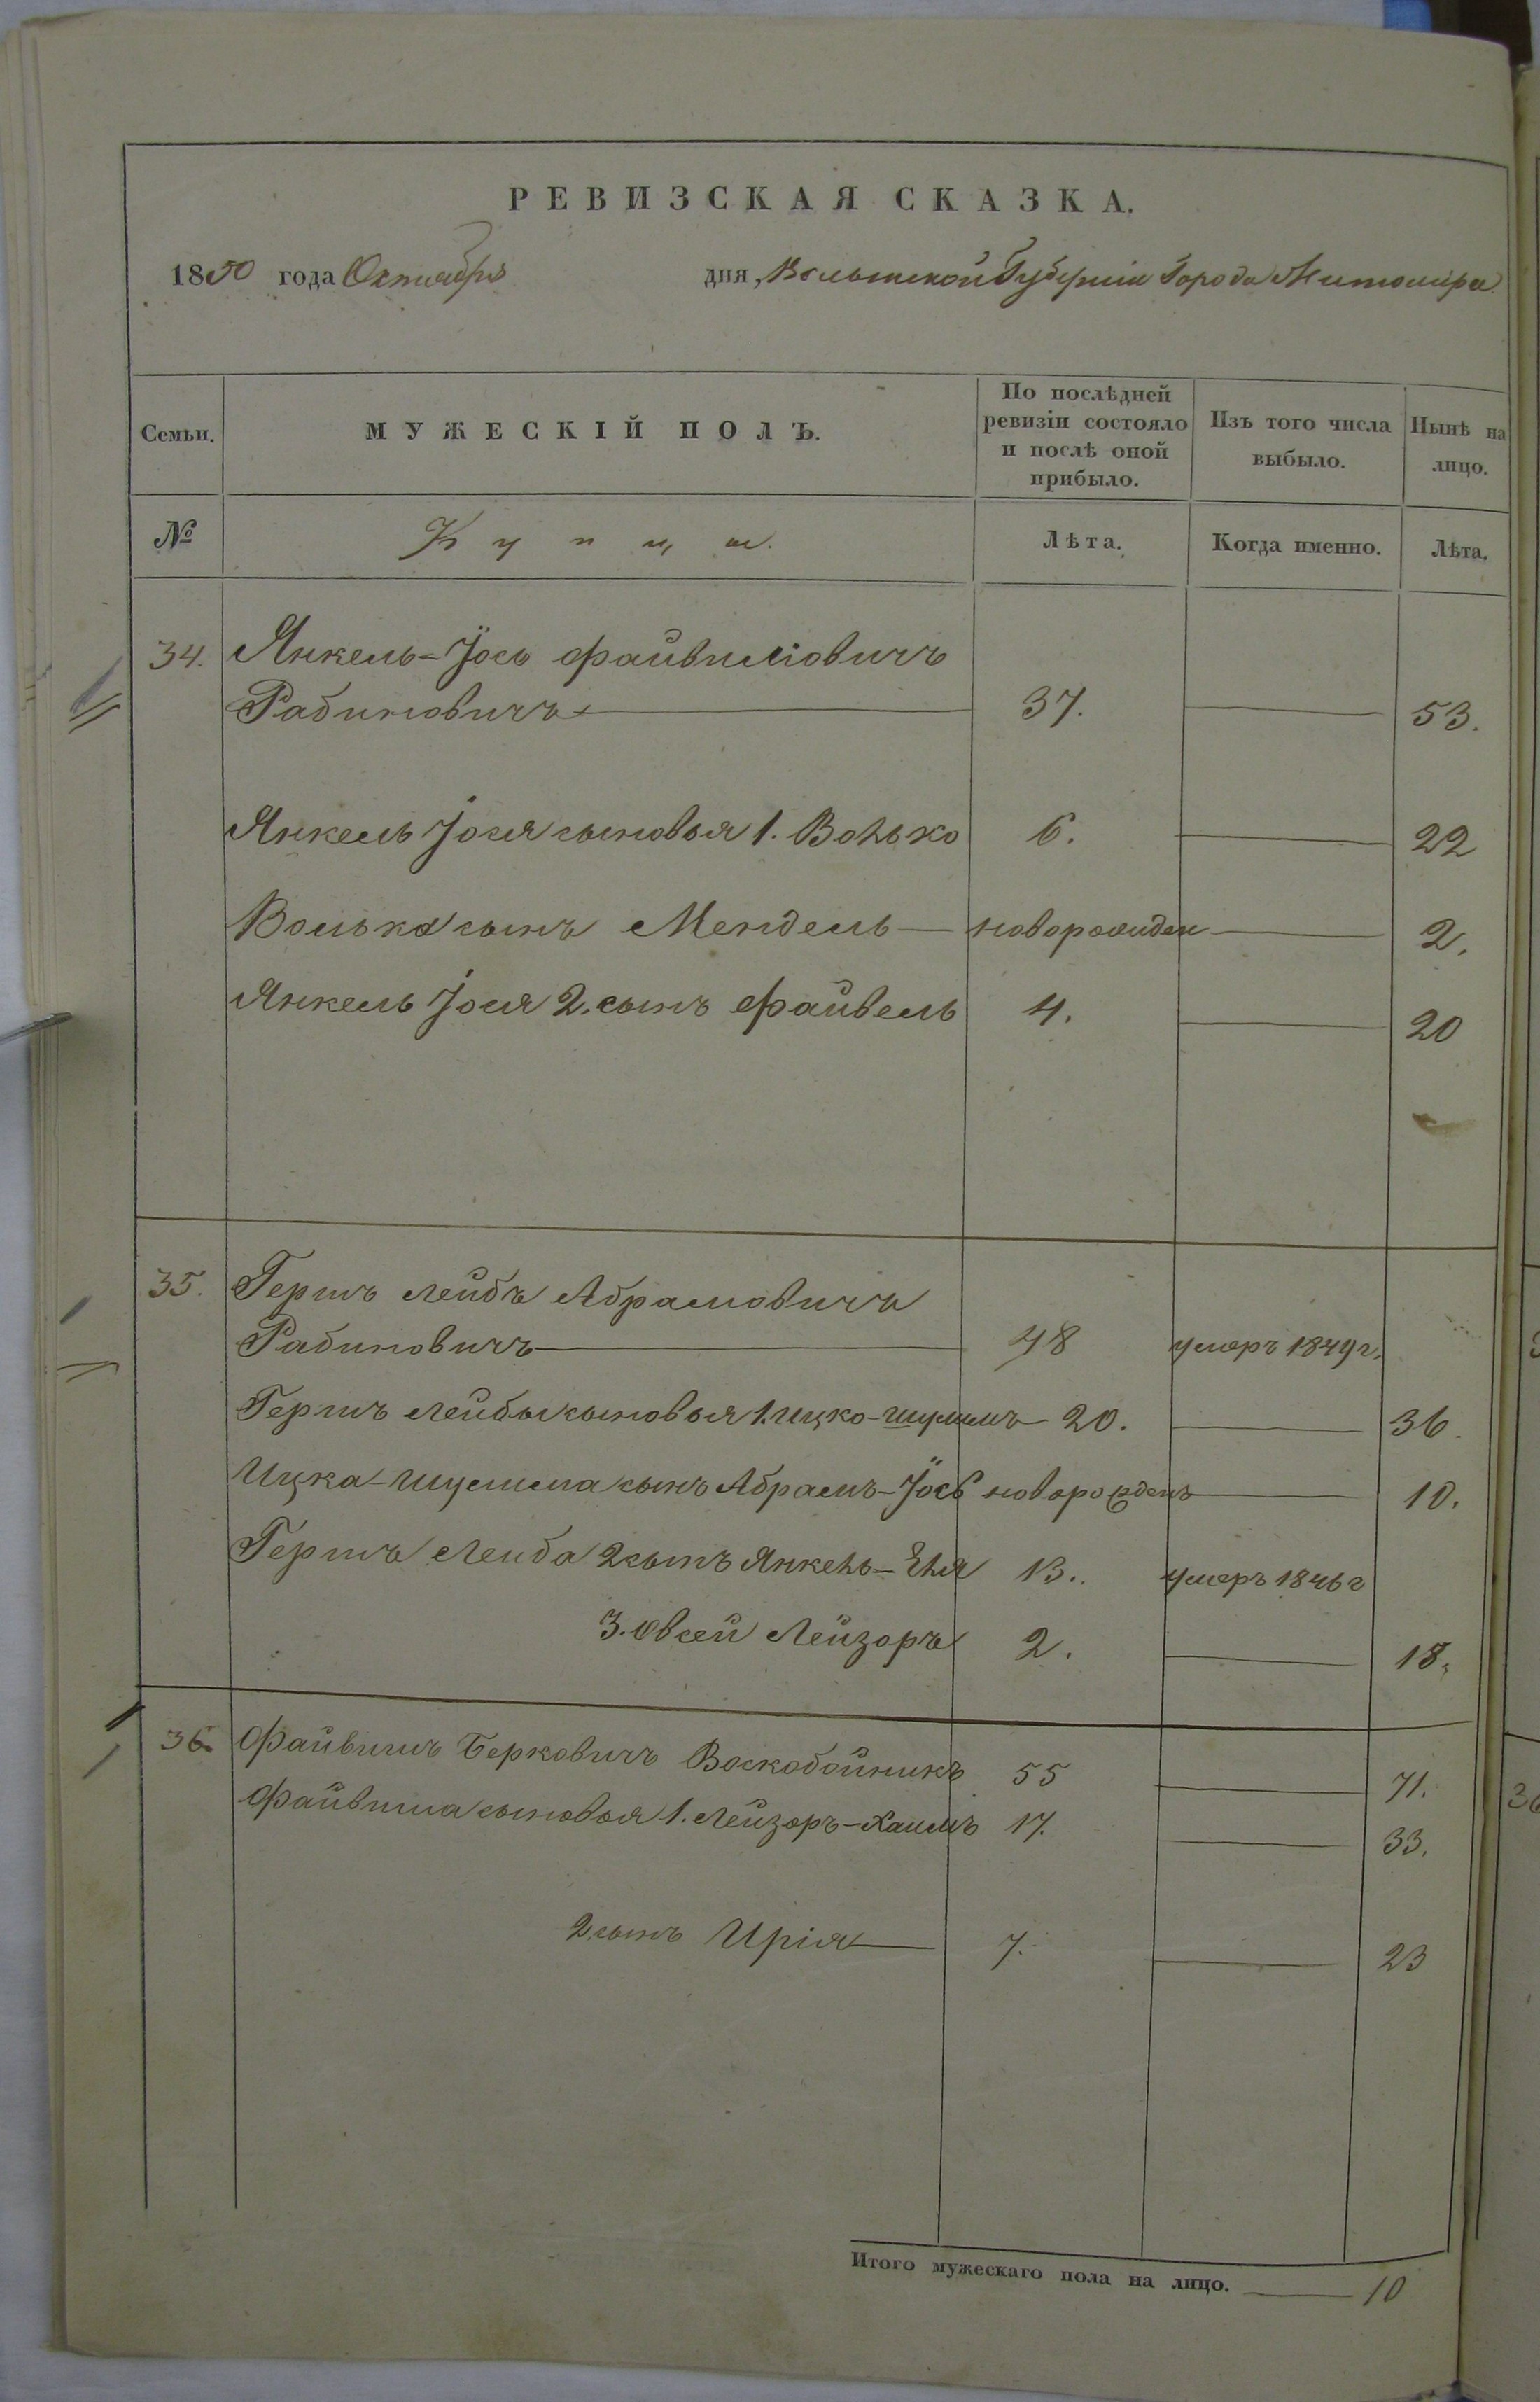 РЕВИЗСКАЯ СКАЗКА.
1850 года Октября дня, Волынской Губерніи Города Житомира
Семьи. МУЖЕСКІЙ ПОЛЪ. По послѣдней ревизіи состояло и послѣ оной прибыло. Изъ того числа выбыло. Нынѣ на лицо.
№ Купцы. Лѣта. Когда именно. Лѣта.
34. Янкель-Іось Файвишовичъ
Рабиновичъ 37. 53.
Янкель Іося сыновья 1. Волько 6. 22
Волька сынъ Мендель новорожден 2.
Янкель Іося 2. сынъ Файвель 4. 20
35. Гершъ Лейбъ Абрамовичъ
Рабиновичъ 48 умеръ 1849 г.
Гершъ Лейбы сыновья 1. Ицко-Шулимъ 20. 36.
Ицка-Шулима сынъ Абрамъ-Іось новорожденъ 10.
Гершъ Лейба 2 сынъ Янкель-Еля 13. умеръ 1846 г
3. Овсей Лейзоръ 2. 18.
36. Файвишъ Берковичъ Воскобойникъ 55 71.
Файвиша сыновья 1. Лейзоръ-Хаимъ 17. 33.
2 сынъ Урія 7. 23
Итого мужескаго пола на лицо. 10
36